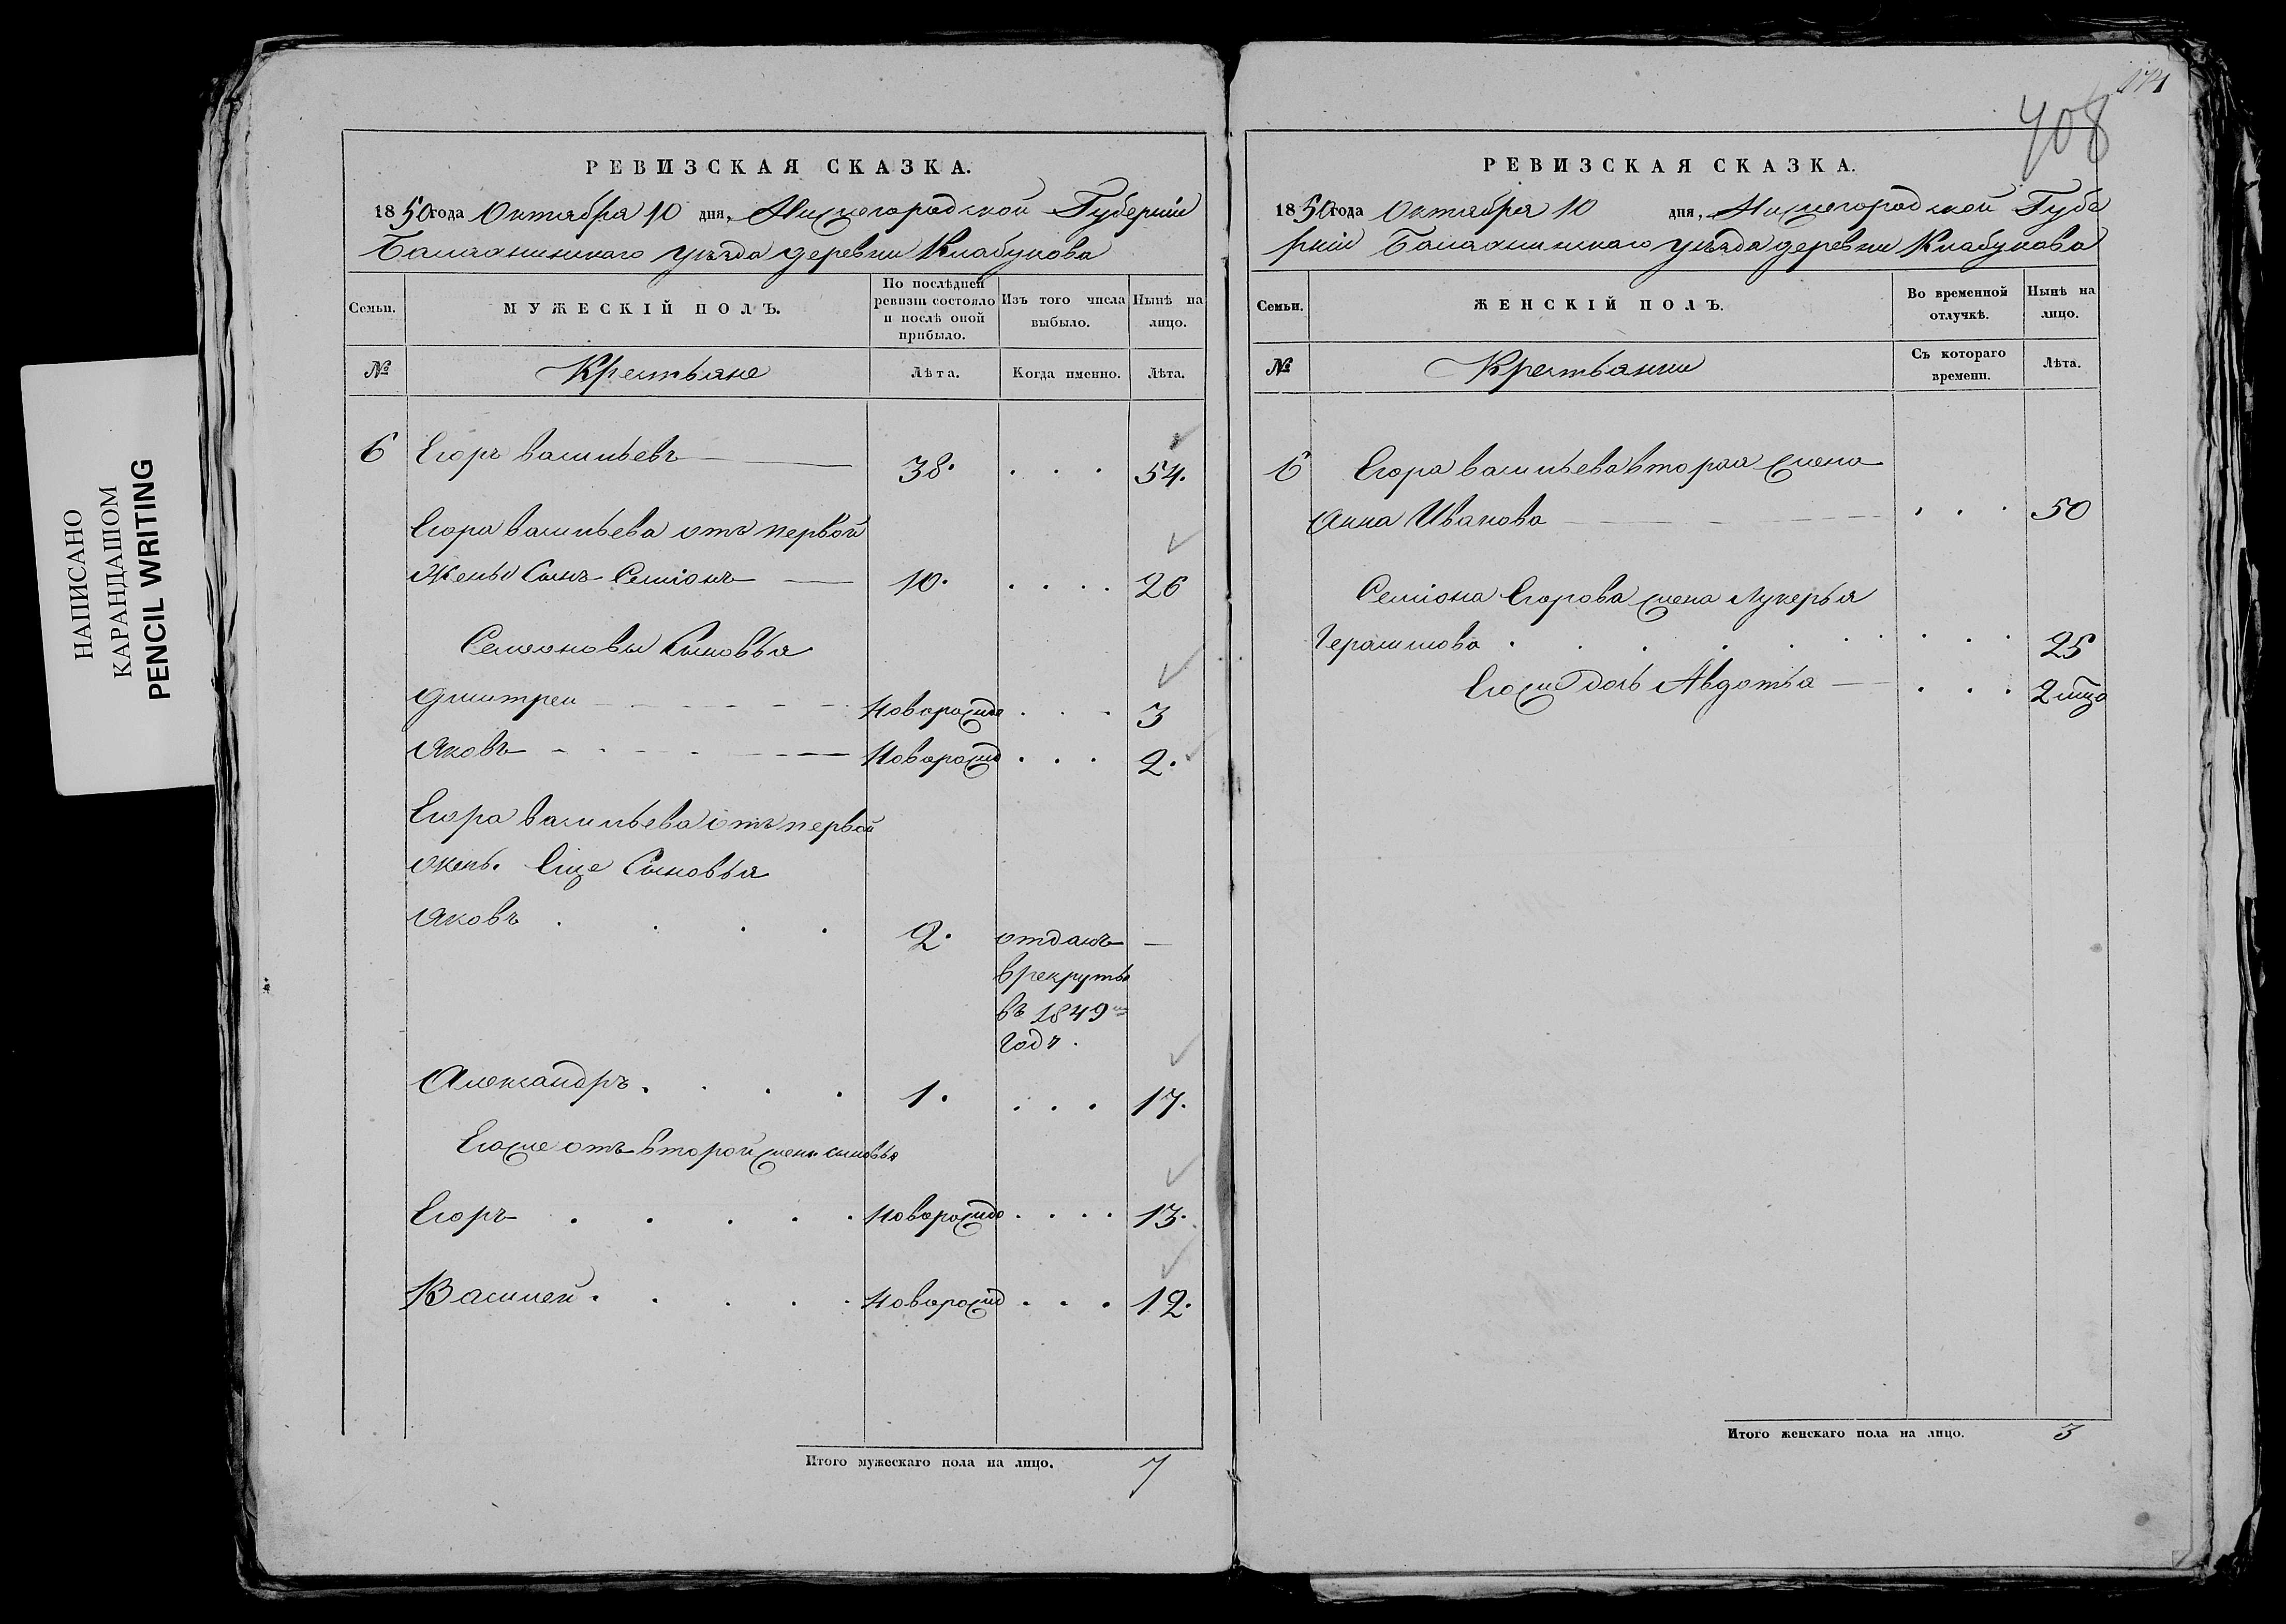 НАПИСАНО
КАРАНДАШОМ
PENCIL WRITING
РЕВИЗСКАЯ СКАЗКА.
1850 года Октября 10 дня, Нижегородской Губернiи
Балахнинскаго уезда деревни Клабукова
Семьи.
МУЖЕСКІЙ ПОЛЪ.
По послѣдней ревизіи состояло и послѣ оной прибыло.
Изъ того числа выбыло.
Ныиѣ на лицо.
№
Крестьяне
Лѣта.
Когда именно.
Лѣта.
6 Егоръ Васильевъ 38. 54.
Егора Васильева отъ первой
Жены Сынъ Семіонъ 10. 26
Семионовы Сыновья
Дмитреи Новорожде 3
Яковъ Новорожд 2.
Егора Васильева отъ первой
жены. Еще Сыновья
Яковъ 2. отданъ
в рекруты
въ 1849м
годѣ.
Александръ. 1. 17.
Егоже отъ второй жены сыновья
Егоръ Новорождо 13.
Василей. Новорожд 12.
Итого мужескаго пола на лицо. 7
408
РЕВИЗСКАЯ СКАЗКА.
1850 года Октября 10 дня, Нижегородской Губе
рніи Балахнинскаго уезда деревни Клабукова
Семьи.
ЖЕНСКІЙ ПОЛЪ.
Во временной отлучкѣ.
Нынѣ на лицо.
№
Крестьянки
Съ котораго времени.
Лѣта.
6 Егора Васильева вторая жена
Анна Иванова 50
Семіона Егорова жена Лукерья
Герасимова 25
Егоже дочь Авдотья 2
Итого женскаго пола на лицо. 3